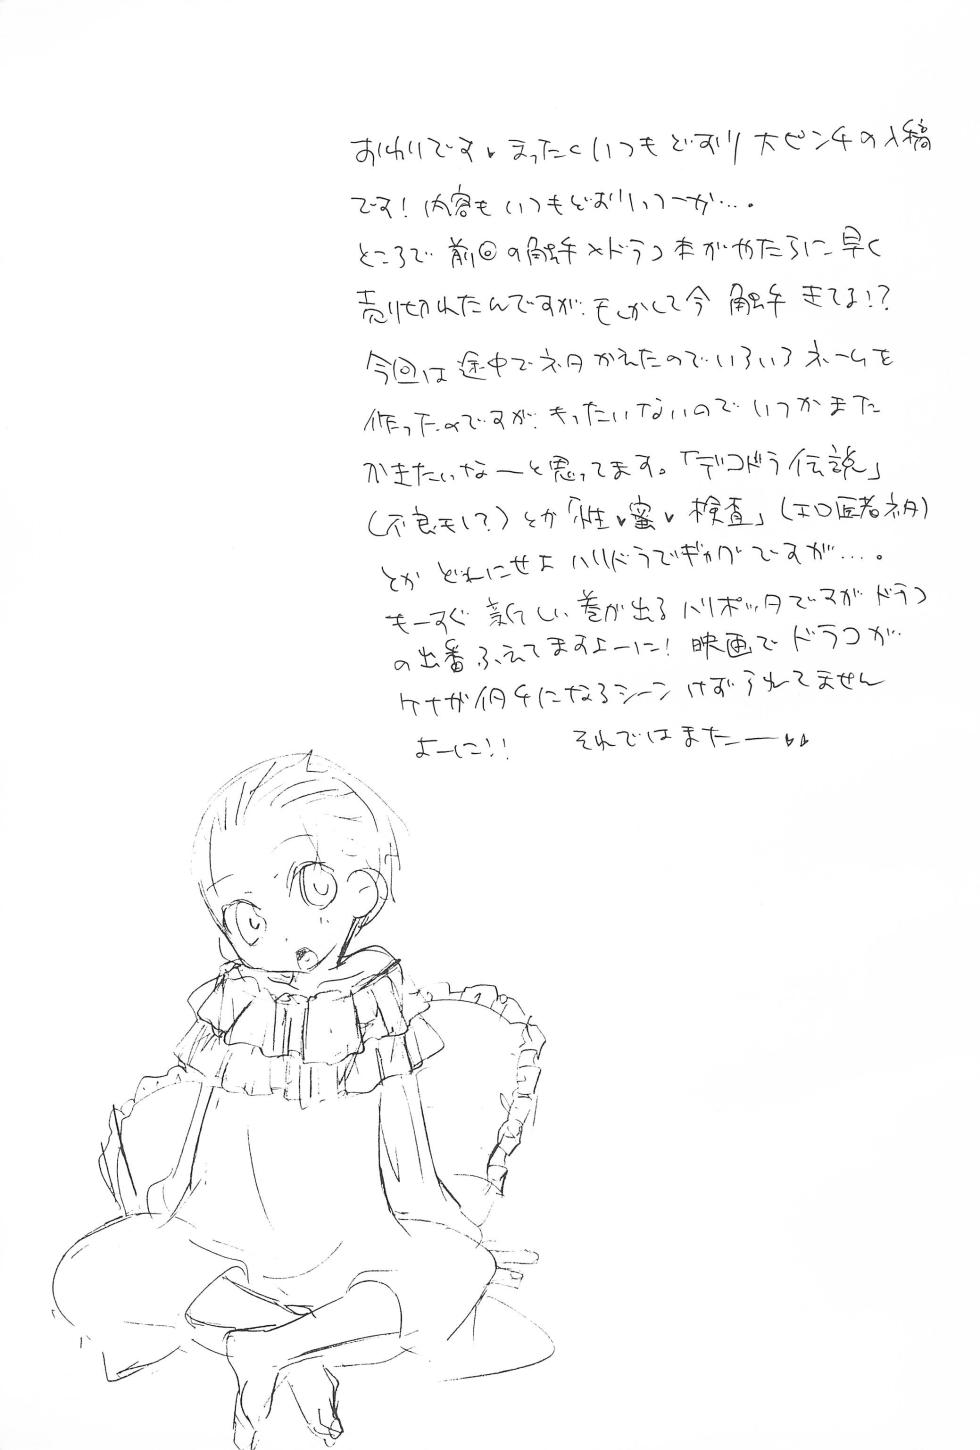 おわりです♥まったくいつもどおり大ピンチの入稿
です!内容もいつもどおりっつーか…。
ところで前回の触手×ドラコ本がやたらに早く
売り切れたんですが、もしかして今触手きてる!?
今回は途中でネタかえたのでいろいろネームを
作ったのですが、もったいないのでいつかまた
かきたいなーと思ってます。「デコドラ伝説」
(不良モノ?)とか「性♥蜜♥検査」(エロ医者ネタ)
とかどれにせよハリドラでギャグですが…。
もーすぐ新しい巻が出るハリポッタですがドラコ
の出番ふえてますよーに!映画でドラコが
ケナガイタチになるシーンけずられてません
よーに!! それではまたー♥♥